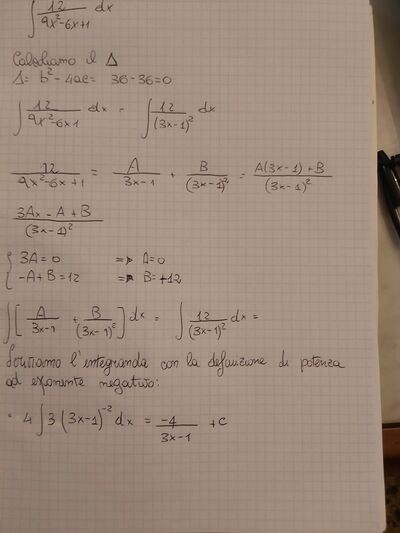 ∫ 12/(9x²-6x+1) dx
Calcoliamo il Δ
Δ = b² - 4ac = 36 - 36 = 0
∫ 12/(9x²-6x+1) dx = ∫ 12/(3x-1)² dx
12/(9x²-6x+1) = A/(3x-1) + B/(3x-1)² = (A(3x-1)+B)/(3x-1)²
(3Ax - A + B)/(3x-1)²
{ 3A = 0 => A = 0
-A + B = 12 => B = +12
∫ [A/(3x-1) + B/(3x-1)²] dx = ∫ 12/(3x-1)² dx =
Scriviamo l'integranda con la definizione di potenza
ad esponente negativo:
= 4 ∫ 3 (3x-1)⁻² dx = -4/(3x-1) + c